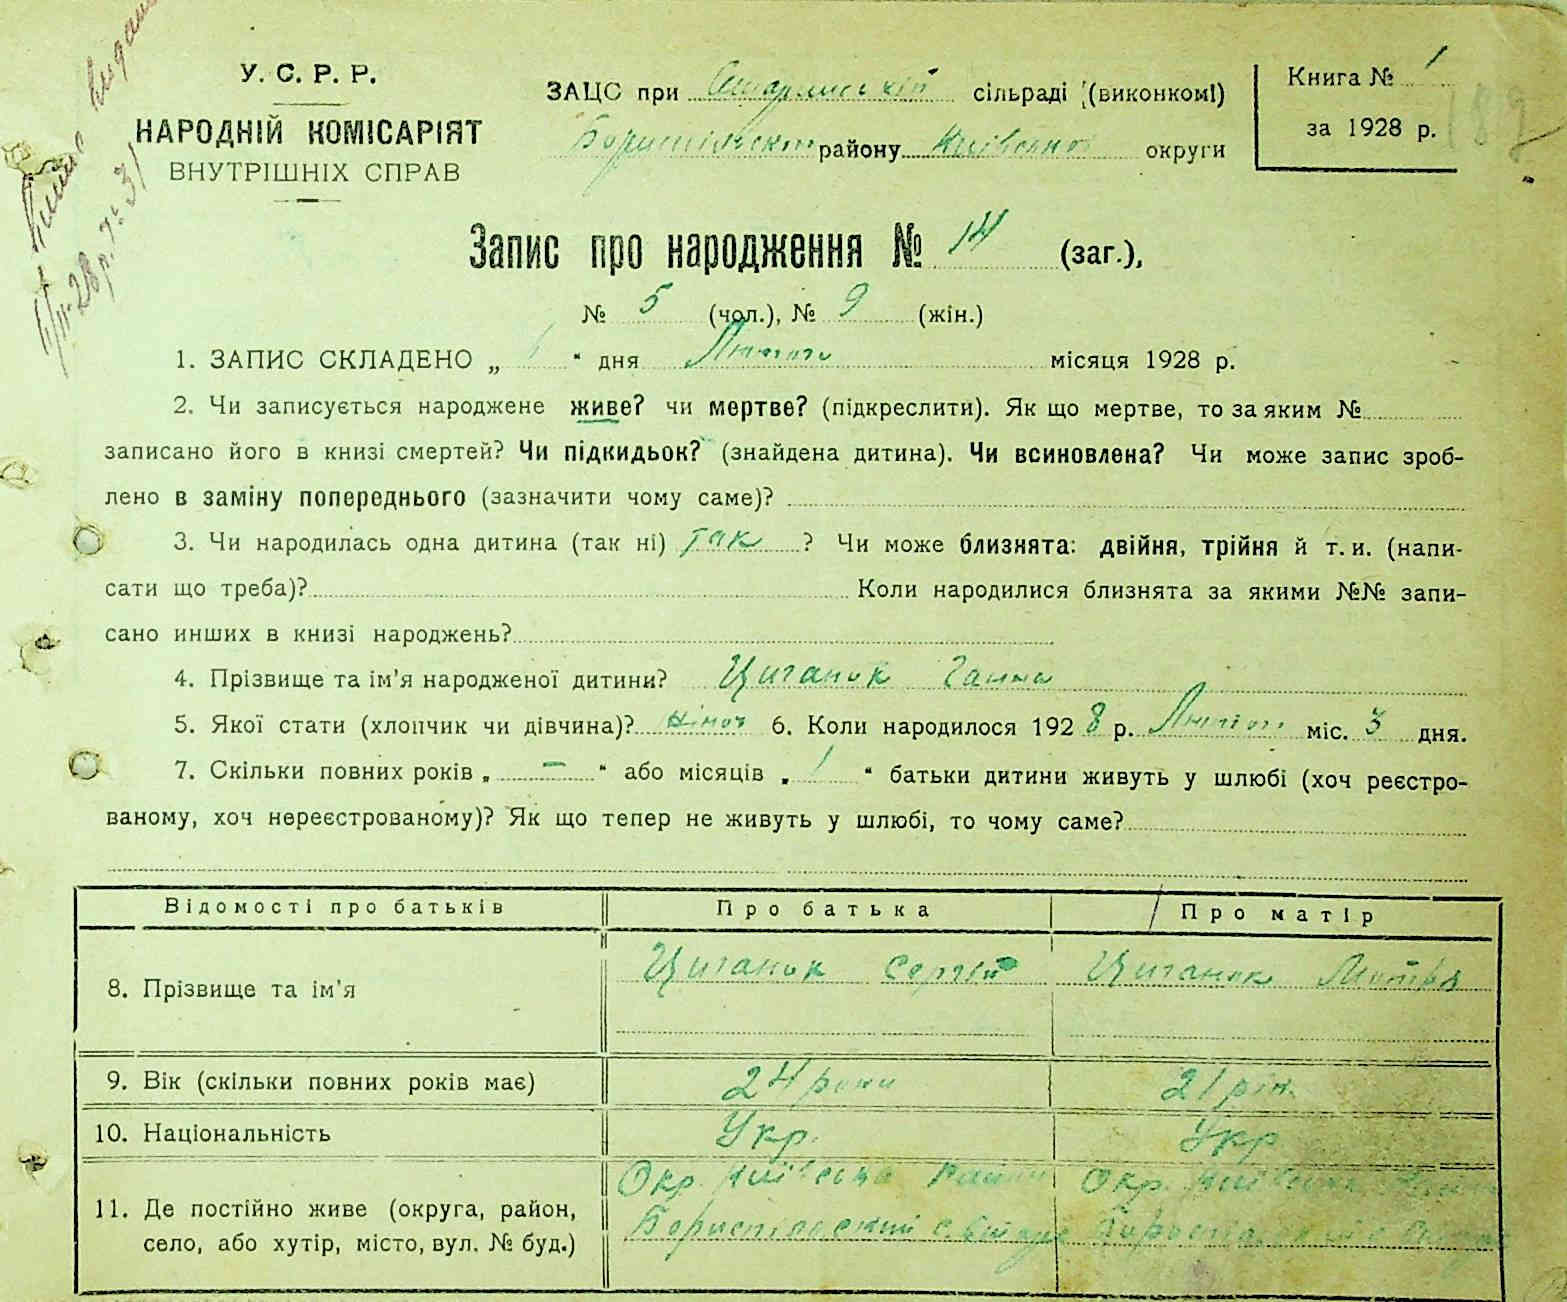 У. С. Р. Р.
НАРОДНІЙ КОМІСАРІЯТ
ВНУТРІШНІХ СПРАВ
ЗАЦС при сільраді (виконкомі)
району округи
Книга № 1
за 1928 р.
Запис про народження № 14 (заг.),
№ 5 (чол.), № 9 (жін.)
1. ЗАПИС СКЛАДЕНО „ “ дня Лютого місяця 1928 р.
2. Чи записується народжене живе? чи мертве? (підкреслити). Як що мертве, то за яким №
записано його в книзі смертей? Чи підкидьок? (знайдена дитина). Чи всиновлена? Чи може запис зроб-
лено в заміну попереднього (зазначити чому саме)?
3. Чи народилась одна дитина (так ні) так ? Чи може близнята: двійня, трійня й т. и. (напи-
сати що треба)? Коли народилися близнята за якими №№ запи-
сано инших в книзі народжень?
4. Прізвище та ім'я народженої дитини? Циганок Ганна
5. Якої стати (хлопчик чи дівчина)? жіноч 6. Коли народилося 1928 р. Лютого міс. 3 дня.
7. Скільки повних років „ – “ або місяців „ 1 “ батьки дитини живуть у шлюбі (хоч реєстро-
ваному, хоч нереєстрованому)? Як що тепер не живуть у шлюбі, то чому саме?
Відомості про батьків Про батька Про матір
8. Прізвище та ім'я Циганок Сергій Циганок Мотря
9. Вік (скільки повних років має) 24 роки 21 рік.
10. Національність Укр. Укр
11. Де постійно живе (округа, район,
село, або хутір, місто, вул. № буд.)
Окр. Київська Район Окр. Київська
Бориспільский с.